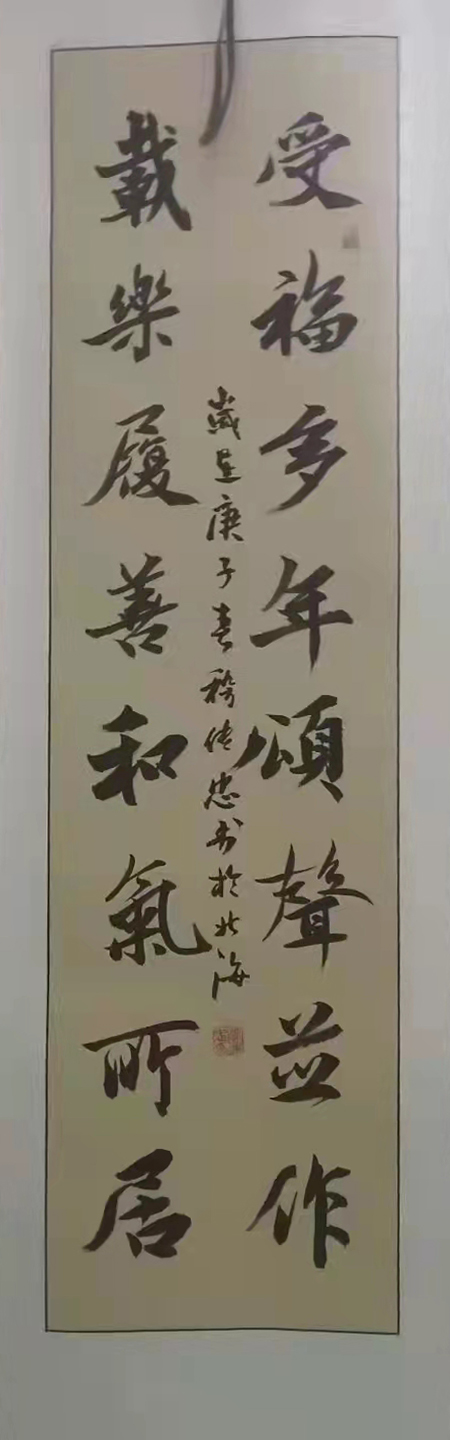 受福多年頌聲並作
載樂履善和氣所居
歲在庚子春 傳忠書於北海